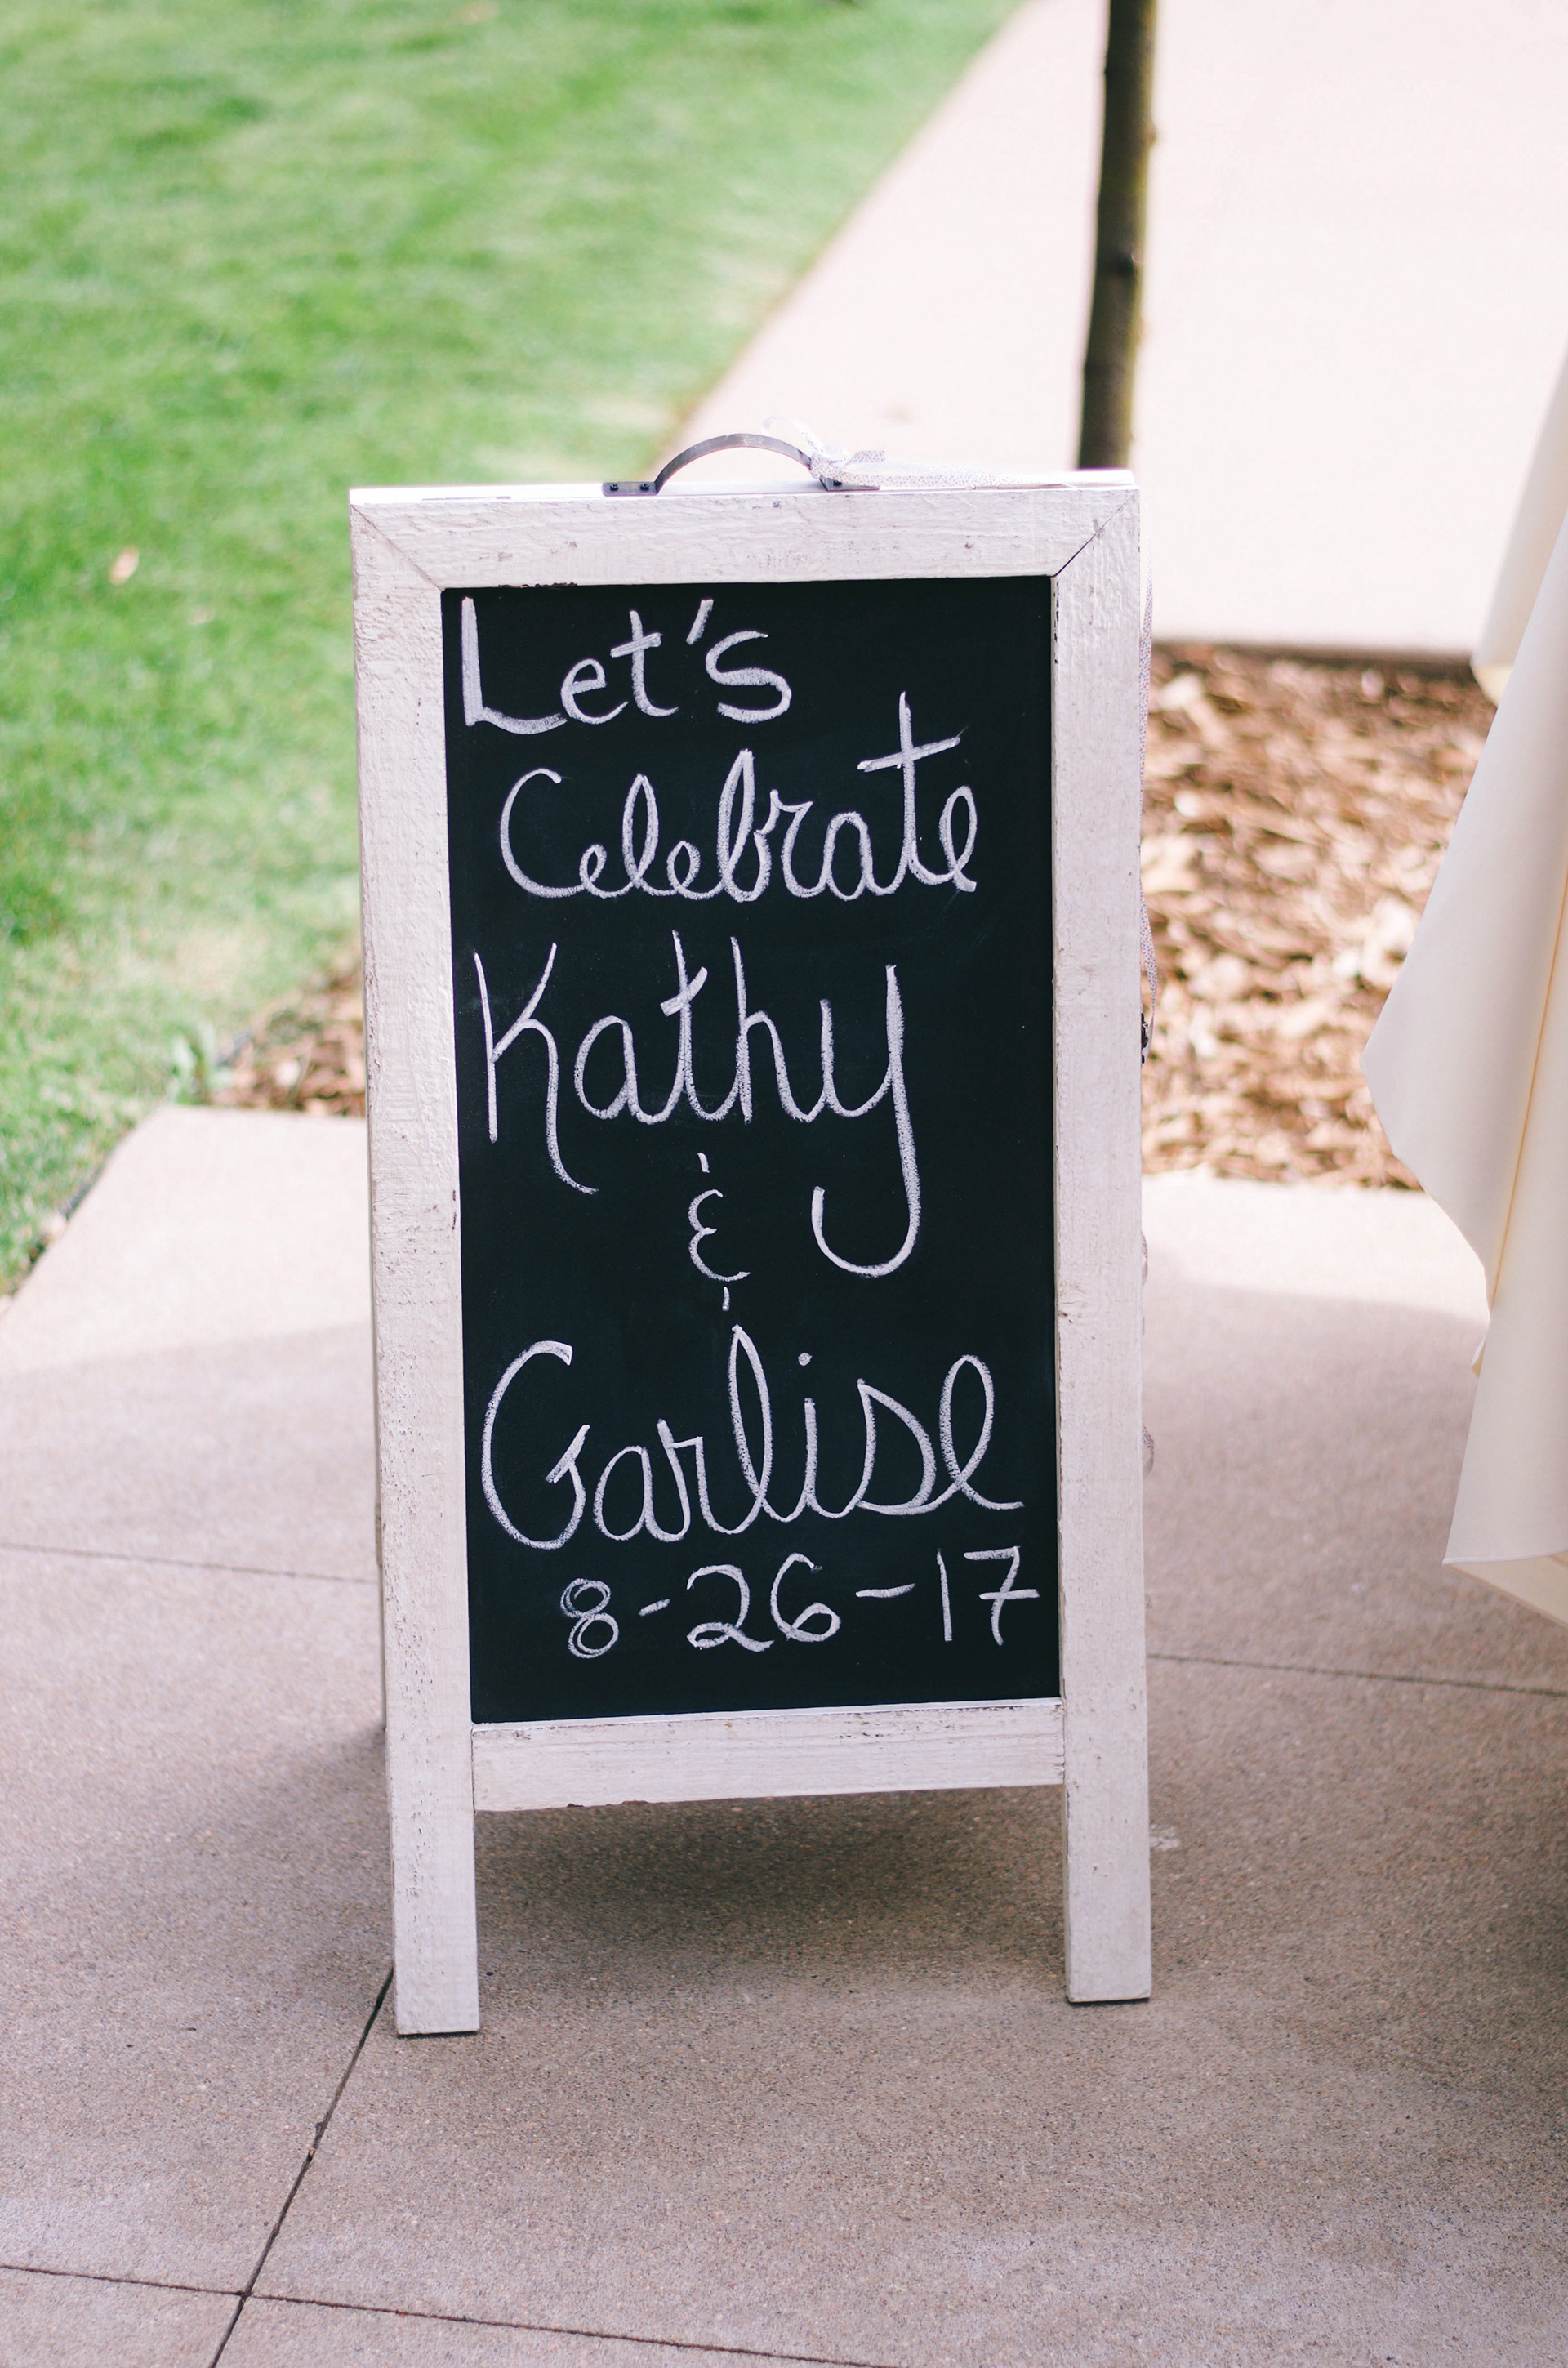 Let's
Celebrate
Kathy
&
Garlise
8-26-17